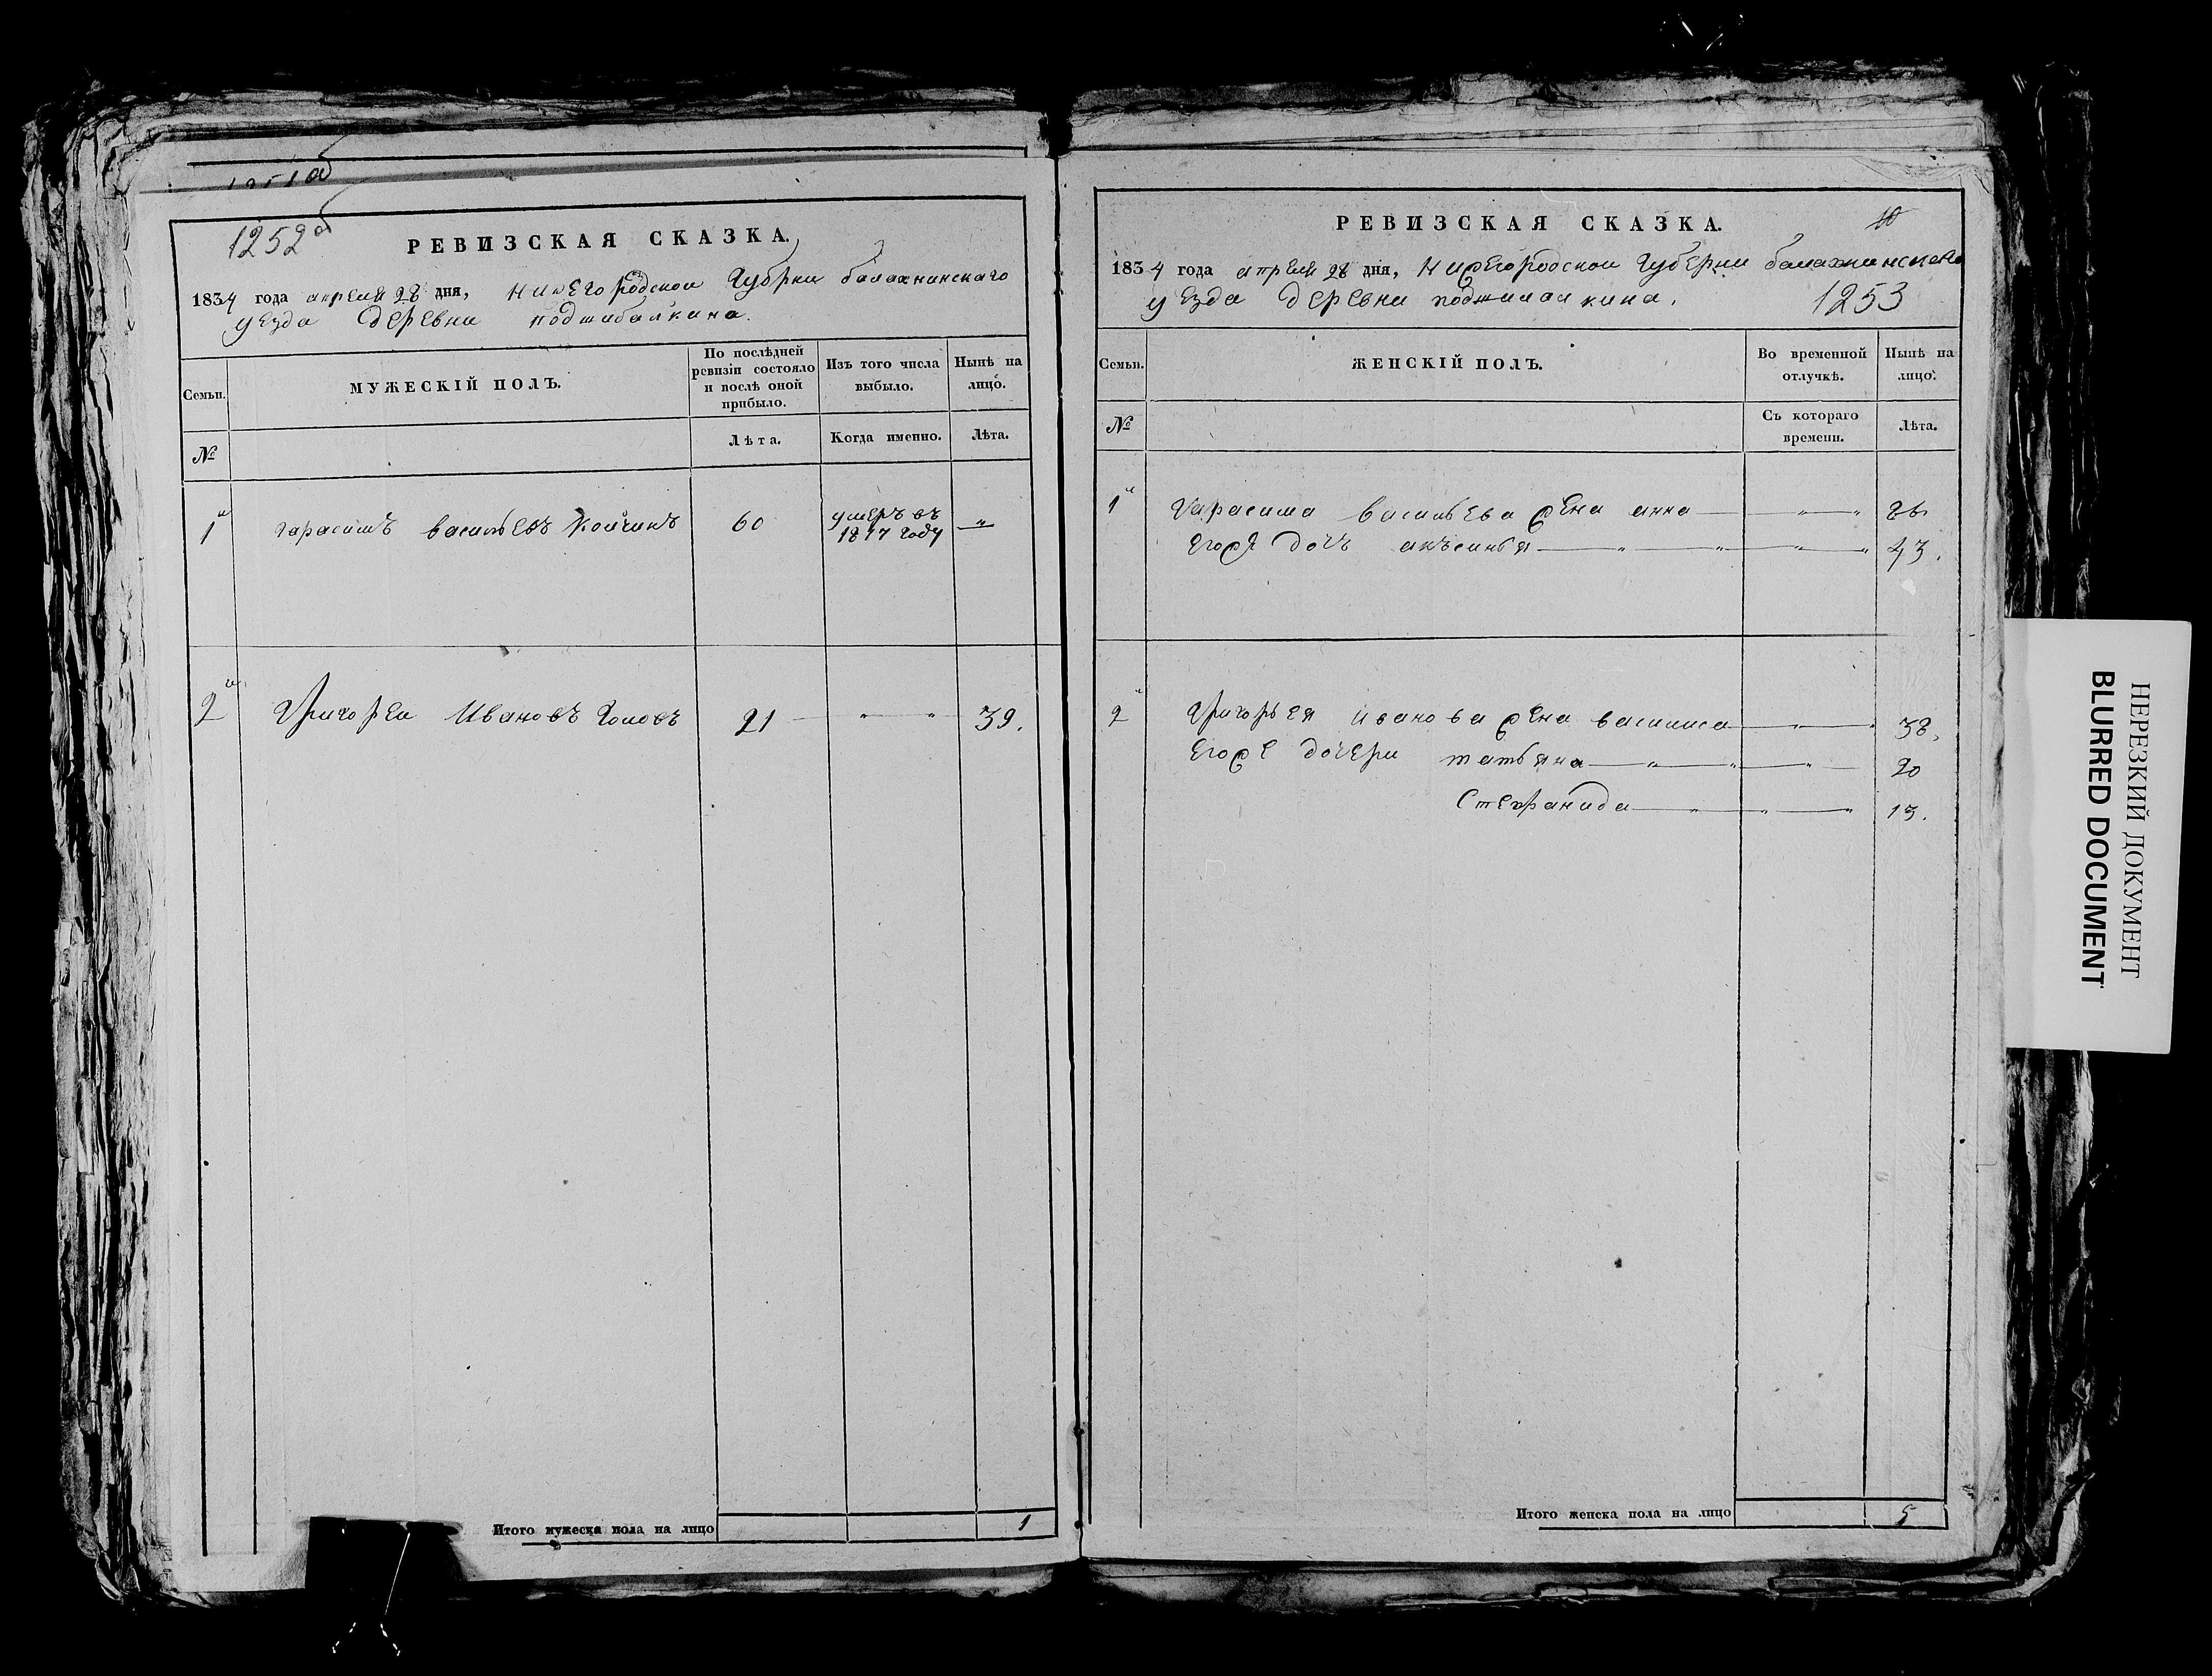 1252об
РЕВИЗСКАЯ СКАЗКА.
1834 года апреля 28 дня, нижегородской Губрни балахнинскаго
уезда деревни подшибалкина.
Семьи.
МУЖЕСКІЙ ПОЛЪ.
По послѣдней ревизіи состояло и послѣ оной прибыло.
Изъ того числа выбыло.
Нынѣ на лицо.
№
Лѣта.
Когда именно.
Лѣта.
1й Гарасимъ васильевъ 60 умеръ въ 1817 году "
2й Григореи Ивановъ 21 " " 39.
Итого мужеска пола на лицо 1
РЕВИЗСКАЯ СКАЗКА.
1834 года апреля 28 дня, нижегородской Губерни балахнинскаго
уезда деревни
1253
Семьи.
ЖЕНСКІЙ ПОЛЪ.
Во временной отлучкѣ.
Нынѣ на лицо.
№
Съ котораго времени.
Лѣта.
1й Гарасима васильева жена анна " "
Егожъ дочь " " " " 43.
2й Григорья иванова жена василиса " " 38.
Егоже дочери татьяна " " " 20
Стефанида " " " 13.
Итого женска пола на лицо 5
НЕРЕЗКИЙ ДОКУМЕНТ
BLURRED DOCUMENT